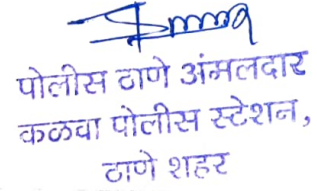 पोलीस ठाणे अंमलदार
कळवा पोलीस स्टेशन,
ठाणे शहर